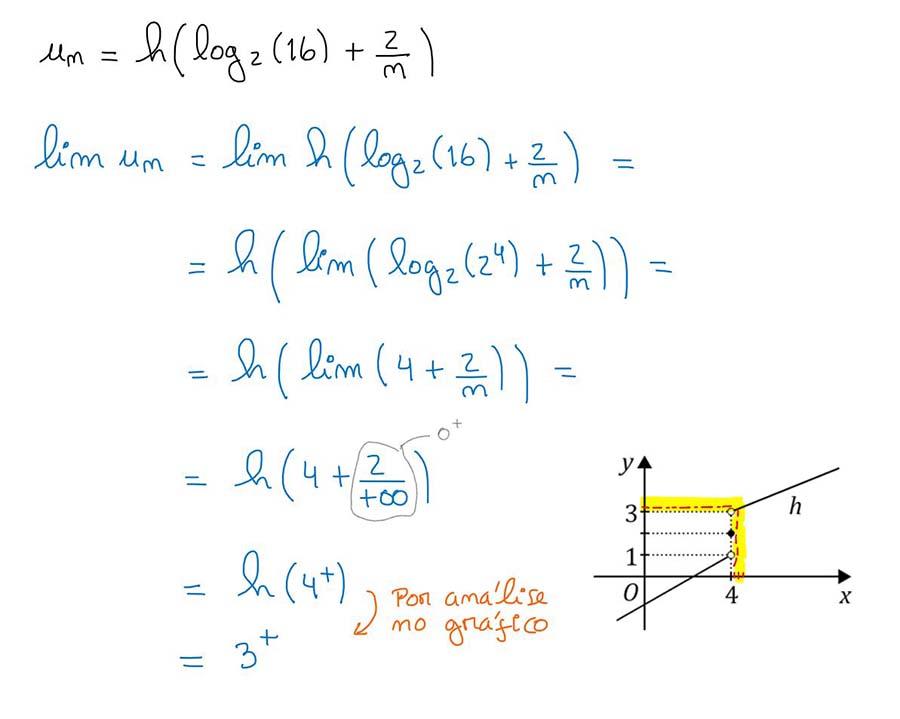 uₘ = h(log₂(16) + 2/m)
lim uₘ = lim h(log₂(16) + 2/m) =
= h(lim(log₂(2⁴) + 2/m)) =
= h(lim(4 + 2/m)) =
= h(4 + 2/+∞) 0⁺
= h(4⁺)
Por análise
no gráfico
= 3⁺
y
3
h
1
O
4
x